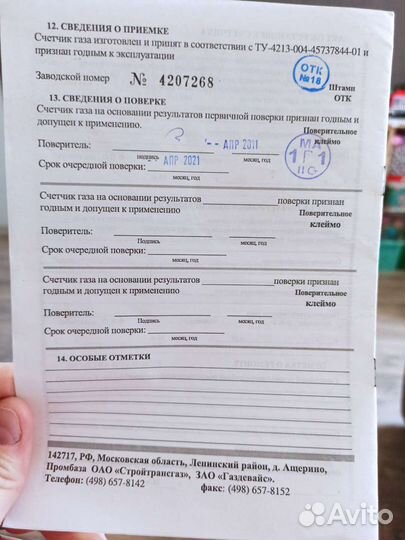 12. СВЕДЕНИЯ О ПРИЕМКЕ
Счетчик газа изготовлен и принят в соответствии с ТУ-4213-004-45737844-01 и
признан годным к эксплуатации
ОТК
№18
Заводской номер № 4207268
Штамп
ОТК
13. СВЕДЕНИЯ О ПОВЕРКЕ
Счетчик газа на основании результатов первичной поверки признан годным и
допущен к применению.
Поверительное
клеймо
Поверитель: -- АПР 2011
подпись месяц, год
Срок очередной поверки: АПР 2021
месяц, год
МА
1 Г 1
Счетчик газа на основании результатов поверки признан
годным и допущен к применению
Поверительное
клеймо
Поверитель:
Подпись месяц, год
Срок очередной поверки:
месяц, год
Счетчик газа на основании результатов поверки признан
годным и допущен к применению
Поверительное
клеймо
Поверитель:
Подпись месяц, год
Срок очередной поверки:
месяц, год
14. ОСОБЫЕ ОТМЕТКИ
142717, РФ, Московская область, Ленинский район, д. Ащерино,
Промбаза ОАО «Стройтрансгаз», ЗАО «Газдевайс».
Телефон: (498) 657-8142 факс: (498) 657-8152
Avito